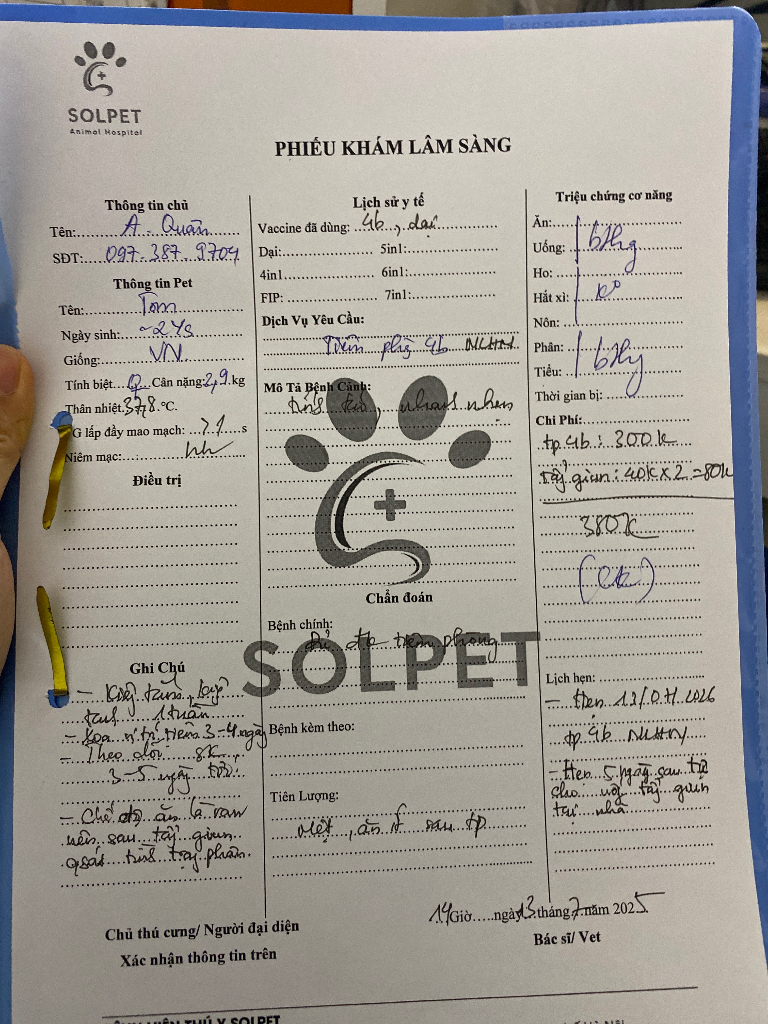 SOLPET
Animal Hospital
PHIẾU KHÁM LÂM SÀNG
Thông tin chủ
Tên: A. Quân
SĐT: 097.387.9704
Thông tin Pet
Tên: Tôm
Ngày sinh: ~2ys
Giống: VN
Tính biệt Cân nặng: 2,9 kg
Thân nhiệt 37,8 °C.
G lấp đầy mao mạch: s
Niêm mạc: hh
Điều trị
Ghi Chú
- tắm,
1 tuần
- Xoa vị trí tiêm 3-4 ngày
- Theo dõi SK,
3-5 ngày tới.
- Chế độ ăn
nên sau tẩy giun
phân.
Lịch sử y tế
Vaccine đã dùng: 4b, dại
Dại: 5in1:
4in1 6in1:
FIP: 7in1:
Dịch Vụ Yêu Cầu:
Tiêm phg 4b NLHN
Mô Tả Bệnh Cảnh:
nhanh nhẹn
Chẩn đoán
Bệnh chính:
Đủ đk tiêm phòng
SOLPET
Bệnh kèm theo:
Tiên Lượng:
Mệt, ăn ít sau tp
Triệu chứng cơ năng
Ăn:
Uống: bthg
Ho:
Hắt xì: k°
Nôn:
Phân: bthg
Tiểu:
Thời gian bị:
Chi Phí:
tp 4b: 300k
Tẩy giun: 40k x 2 = 80k
380k
(ck)
Lịch hẹn:
- Hẹn 13/07/2026
tp 4b NLHN
- Hẹn 5 ngày sau
cho uống tẩy giun
tại nhà
14 Giờ.....ngày 13 tháng 7 năm 2025
Chủ thú cưng/ Người đại diện
Xác nhận thông tin trên
Bác sĩ/ Vet
THÚ Y SOLPET